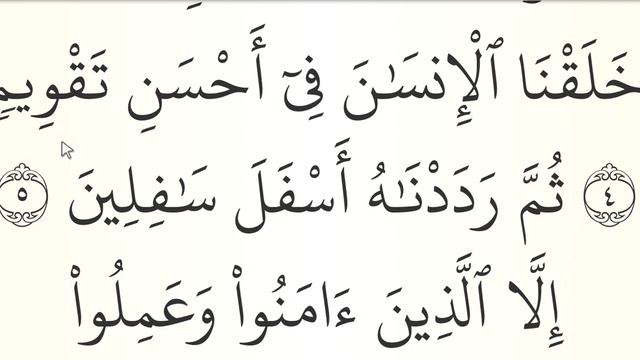 خَلَقْنَا ٱلْإِنسَـٰنَ فِىٓ أَحْسَنِ تَقْوِيمٍ
٤ ثُمَّ رَدَدْنَـٰهُ أَسْفَلَ سَـٰفِلِينَ ٥
إِلَّا ٱلَّذِينَ ءَامَنُوا۟ وَعَمِلُوا۟